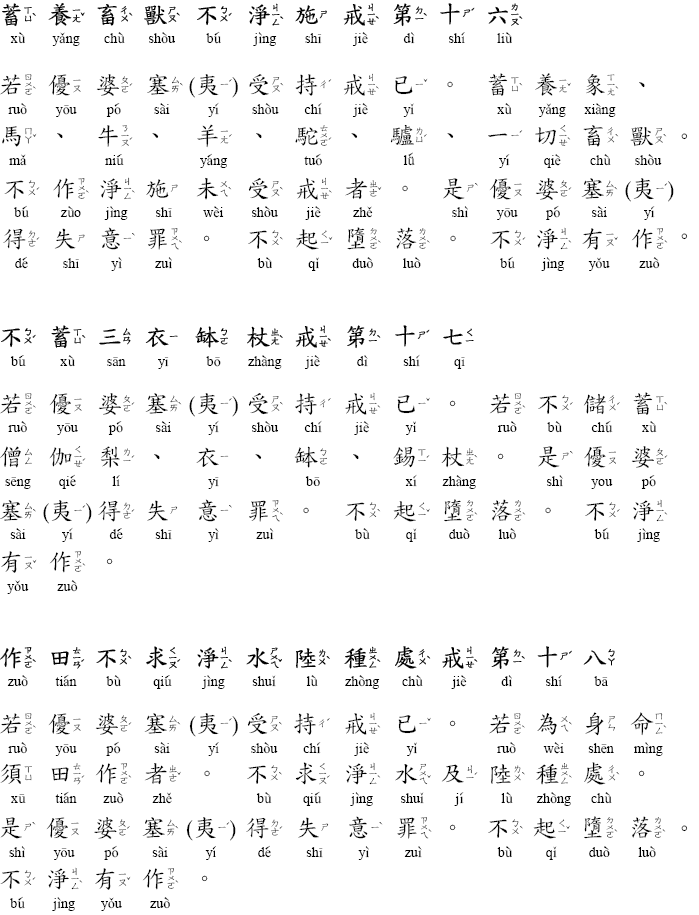 蓄養畜獸不淨施戒第十六
xù yǎng chù shòu bú jìng shī jiè dì shí liù
若優婆塞(夷)受持戒已。蓄養象、
ruò yōu pó sài yí shòu chí jiè yǐ xù yǎng xiàng
馬、牛、羊、駝、驢、一切畜獸。
mǎ niú yáng tuó lǘ yí qiè chù shòu
不作淨施未受戒者。是優婆塞(夷)
bú zuò jìng shī wèi shòu jiè zhě shì yōu pó sài yí
得失意罪。不起墮落。不淨有作。
dé shī yì zuì bù qǐ duò luò bú jìng yǒu zuò
不蓄三衣缽杖戒第十七
bú xù sān yī bō zhàng jiè dì shí qī
若優婆塞(夷)受持戒已。若不儲蓄
ruò yōu pó sài yí shòu chí jiè yǐ ruò bù chú xù
僧伽梨、衣、缽、錫杖。是優婆
sēng qié lí yī bō xí zhàng shì you pó
塞(夷)得失意罪。不起墮落。不淨
sài yí dé shī yì zuì bù qǐ duò luò bú jìng
有作。
yǒu zuò
作田不求淨水陸種處戒第十八
zuò tián bù qiú jìng shuǐ lù zhòng chù jiè dì shí bā
若優婆塞(夷)受持戒已。若為身命
ruò yōu pó sài yí shòu chí jiè yǐ ruò wèi shēn mìng
須田作者。不求淨水及陸種處。
xū tián zuò zhě bù qiú jìng shuǐ jí lù zhòng chù
是優婆塞(夷)得失意罪。不起墮落。
shì yōu pó sài yí dé shī yì zuì bù qǐ duò luò
不淨有作。
bú jìng yǒu zuò